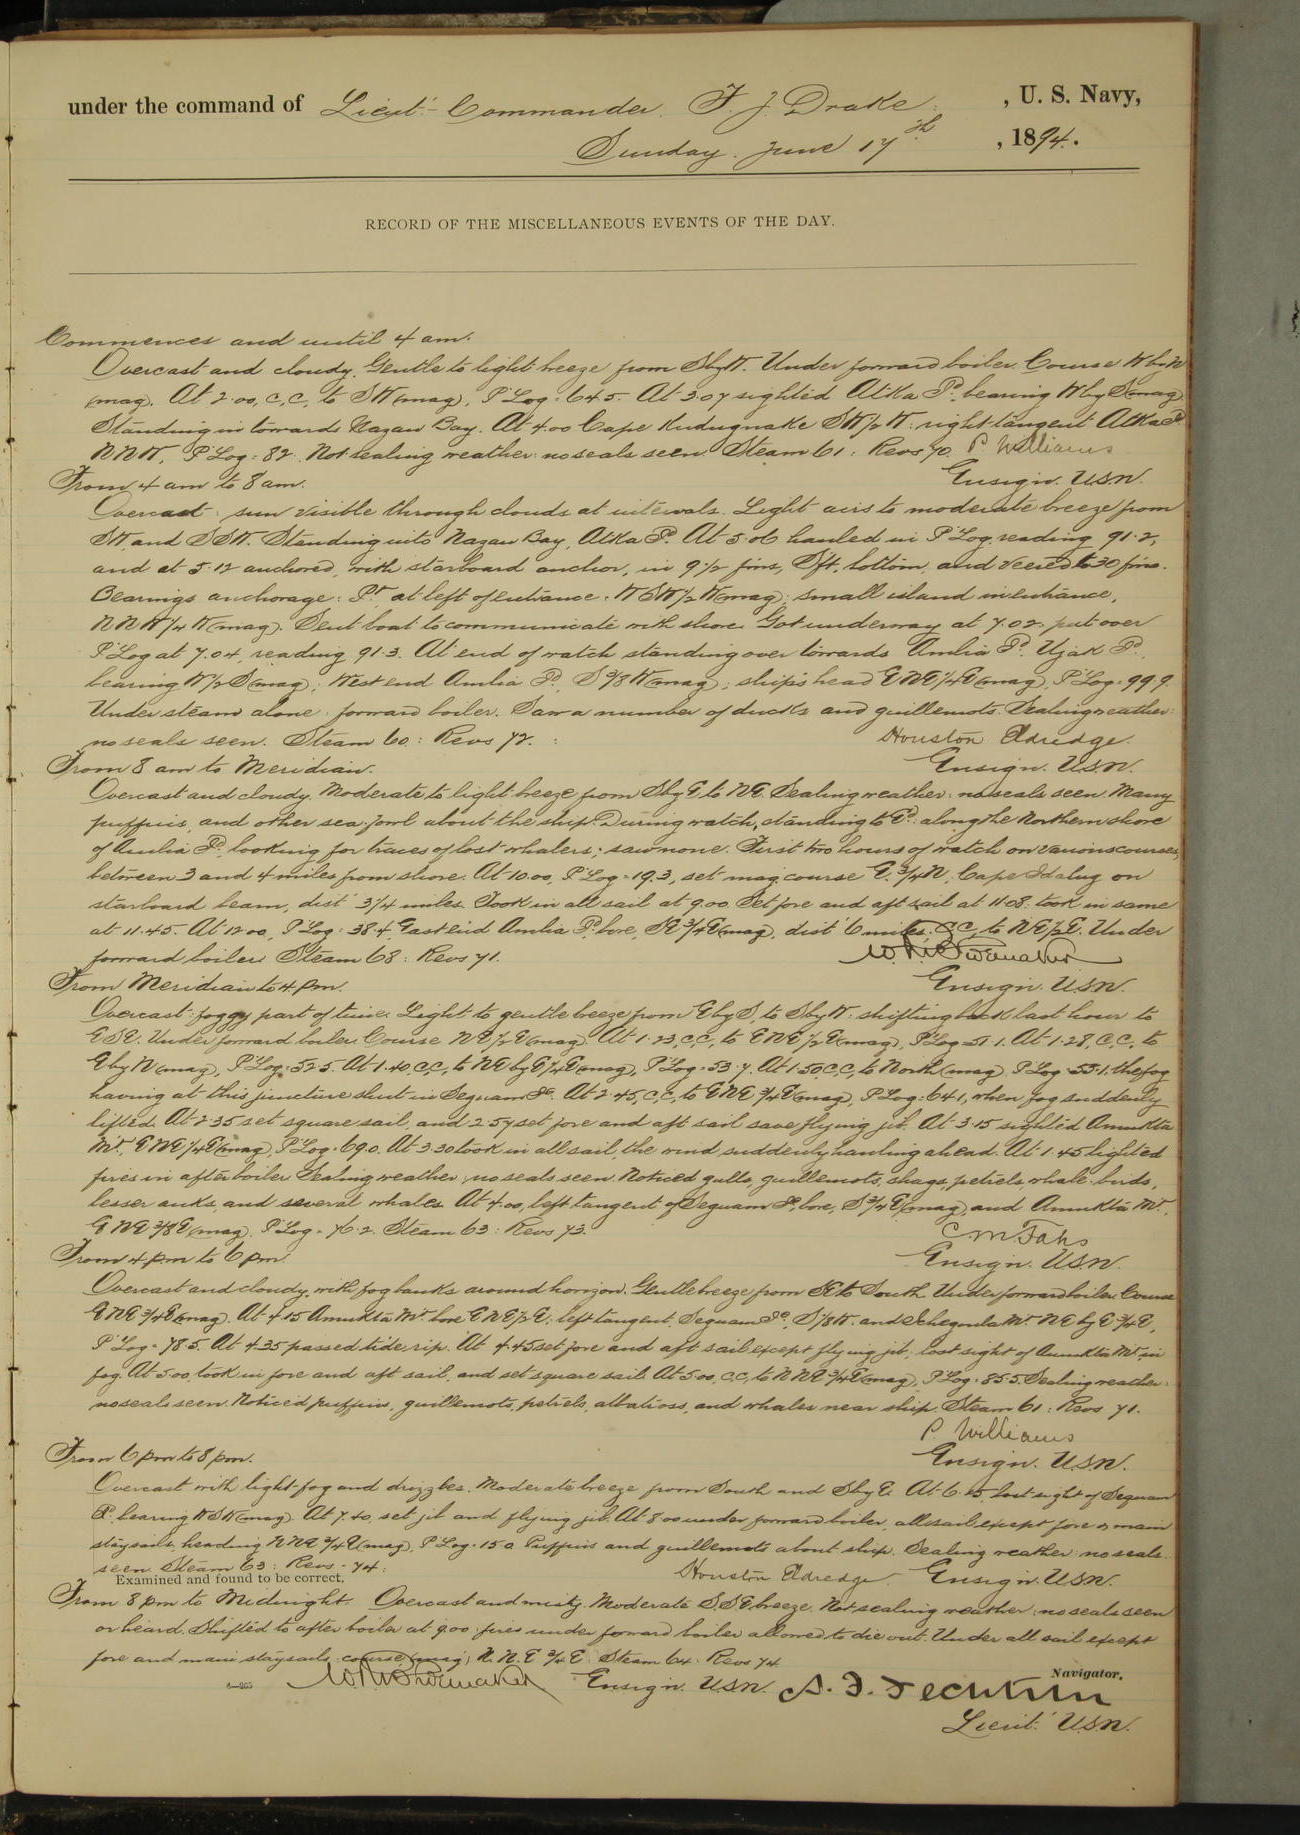 under the command of Lieut.-Commander F. J. Drake, U. S. Navy,
Sunday. June 17th, 1894.
RECORD OF THE MISCELLANEOUS EVENTS OF THE DAY.
Commences and until 4 am.
Overcast and cloudy. Gentle to light breeze from SbyW. Under forward boiler. Course WbyN
(mag). At 2.00, c.c. to SW (mag), P. Log: 64.5. At 3.07 sighted Atka Id. bearing WbyS (mag)
Standing in towards Nazan Bay. At 4.00 Cape Kudugnake SW1/2W: right tangent Atka Id.
NNW, P. Log: 82. Not sealing weather: no seals seen. Steam 61: Revs 70. P. Williams
From 4 am to 8 am. Ensign. U.S.N.
Overcast: sun visible through clouds at intervals. Light airs to moderate breeze from
SW. and SSW. Standing into Nazan Bay, Atka Id. At 5.06 hauled in P. Log, reading 91.2,
and at 5.12 anchored, with starboard anchor, in 9 1/2 fms, Sft. bottom, and veered to 30 fms.
Bearings anchorage: Pt. at left of entrance: WSW1/2W (mag): small island in entrance,
NNW1/4W (mag). Sent boat to communicate with shore. Got underway at 7.02. put over
P. Log at 7.04, reading 91.3. At end of watch standing over towards Amlia Id. Ujak Id.
bearing W1/2S (mag); West end Amlia Id. S3/8W (mag); ship's head ENE1/4E (mag), P. Log: 99.9.
Under steam alone: forward boiler. Saw a number of ducks and guillemots. Sealing weather:
no seals seen. Steam 60: Revs 72. Houston Eldredge.
From 8 am to Meridian. Ensign. U.S.N.
Overcast and cloudy. Moderate to light breeze from SbyE to NE. Sealing weather: no seals seen. Many
puffins, and other sea-fowl about the ship. During watch, standing to Ed. along the Northern shore
of Amlia Id. looking for traces of lost whalers; saw none. First two hours of watch on various courses,
between 3 and 4 miles from shore. At 10.00, P. Log: 19.3, set mag. course E.3/4N, Cape Idalug on
starboard beam, dist. 3 1/4 miles. Took in all sail at 9.00. Set fore and aft sail at 11.08: took in same
at 11.45. At 12.00, P. Log: 38.4, East end Amlia Id. bore, SE3/4E (mag), dist. 6 miles. C.C. to NE1/2E. Under
forward boiler. Steam 68: Revs 71. W. R. Shoemaker
From Meridian to 4 pm. Ensign. U.S.N.
Overcast: foggy part of time. Light to gentle breeze from EbyS, to SbyW: shifting back last hour to
ESE. Under forward boiler. Course NE1/2E (mag). At 1.23, c.c. to ENE1/2E (mag), P. Log: 51.1. At 1.28, c.c. to
EbyN (mag), P. Log: 52.5. At 1.40, c.c. to NEbyE1/4E (mag), P. Log: 53.7. At 1.50 c.c. to North (mag), P. Log: 55.1. the fog
having at this juncture shut in Seguam Id. At 2.45, c.c. to ENE3/4E (mag), P. Log: 64.1, when fog suddenly
lifted. At 2.35 set square sail, and 2.57 set fore and aft sail save flying jib. At 3.15 sighted Amukta
Mt., ENE1/4E (mag), P. Log: 69.0. At 3.30 took in all sail, the wind suddenly hauling ahead. At 1.45 lighted
fires in after boiler. Sealing weather; no seals seen. Noticed gulls, guillemots, shags, petrels, whale-birds,
lesser auks, and several whales. At 4.00, left tangent of Seguam Id. bore, S3/4E (mag) and Amukta Mt.,
ENE3/8E (mag). P. Log: 76.2. Steam 63: Revs 73. C. M. Fahs
From 4 pm to 6 pm. Ensign. U.S.N.
Overcast and cloudy, with fog banks around horizon. Gentle breeze from SE to South. Under forward boiler. Course
ENE3/4E (mag). At 4.15 Amukta Mt. bore ENE1/2E: left tangent, Seguam Id., S1/8W. and Mt. NEbyE3/4E,
P. Log: 78.5. At 4.35 passed tide rip. At 4.45 set fore and aft sail except flying jib, lost sight of Amukta Mt. in
fog. At 5.00, took in fore and aft sail, and set square sail. At 5.00, c.c. to NNE3/4E (mag), P. Log: 85.5. Sealing weather:
no seals seen. Noticed puffins, guillemots, petrels, albatross, and whales near ship. Steam 61: Revs 71.
P. Williams
From 6 pm to 8 pm. Ensign. U.S.N.
Overcast with light fog and drizzles. Moderate breeze from South and SbyE. At 6.15, lost sight of Seguam
Id. bearing WSW (mag). At 7.40, set jib and flying jib. At 8.00 under forward boiler, all sail except fore & main
staysails, heading NNE3/4E (mag), P. Log: 15.0. Puffins and guillemots about ship. Sealing weather: no seals
seen. Steam 63: Revs - 74. Houston Eldredge. Ensign. U.S.N.
Examined and found to be correct.
From 8 pm to Midnight. Overcast and misty. Moderate S.SE breeze. Not sealing weather: no seals seen
or heard. Shifted to after boiler at 9.00: fires under forward boiler allowed to die out. Under all sail except
fore and main staysails, course (mag) N.N.E3/4E. Steam 64: Revs 74
Navigator.
W. R. Shoemaker Ensign. U.S.N.
Lieut. U.S.N.